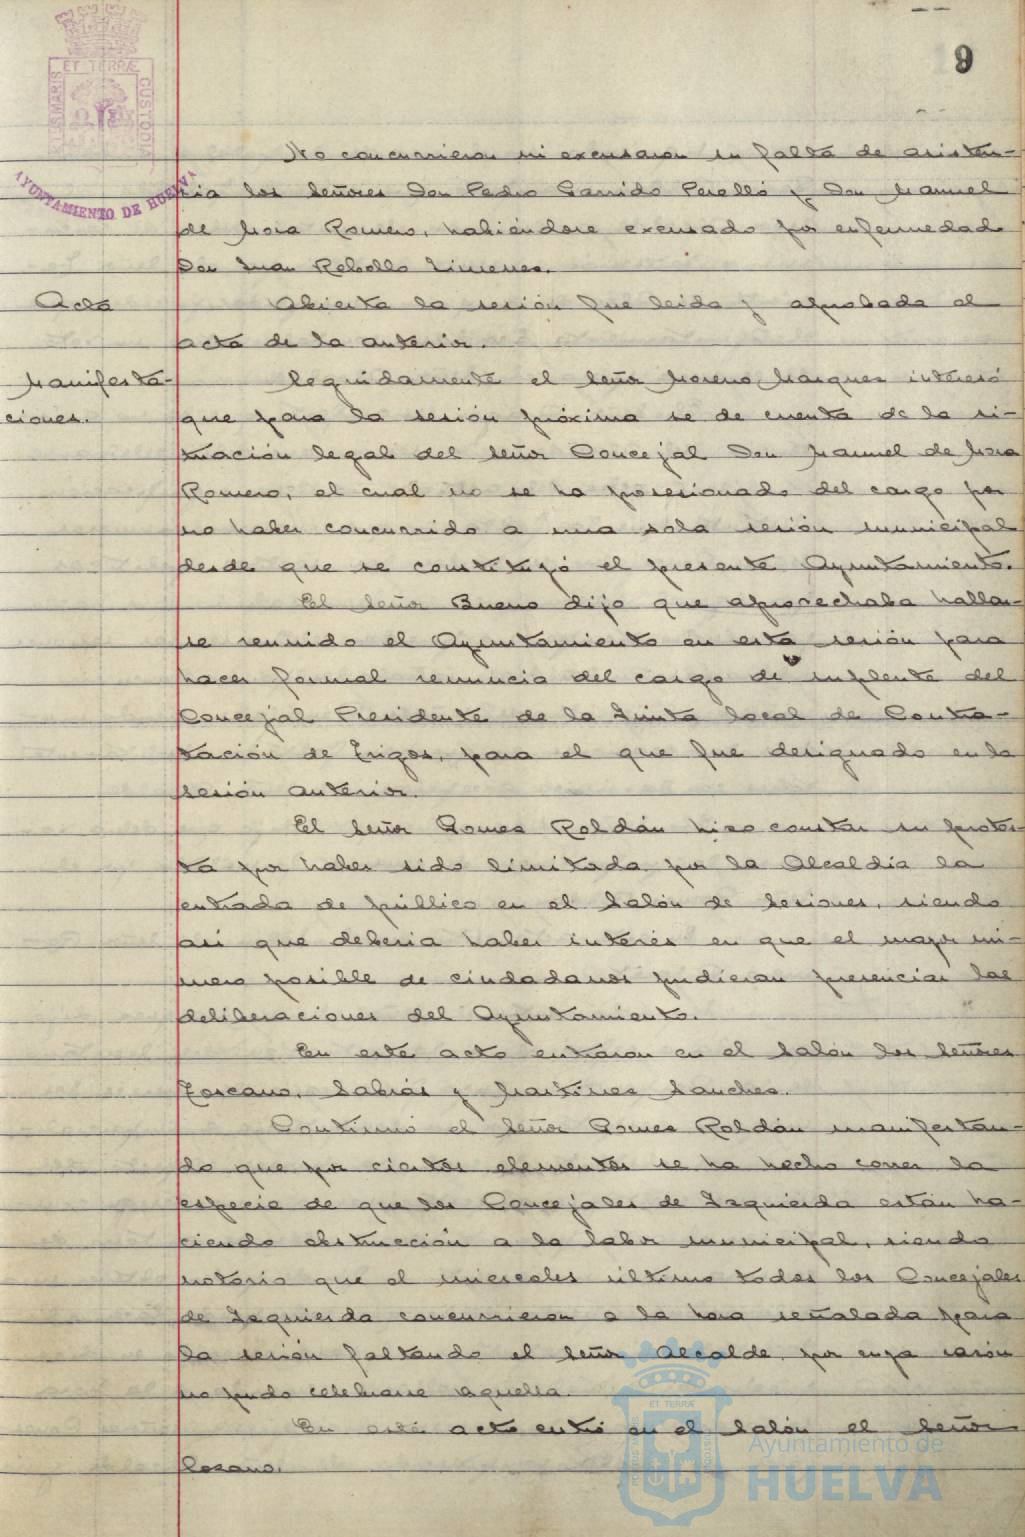 9
ET TERRÆ
CUSTODIA
AYUNTAMIENTO DE HUELVA
No concurrieron ni excusaron su falta de asisten-
cia los Señores Don Pedro Garrido Perelló y Don Manuel
de Mora Romero, habiéndose excusado por enfermedad
Don Juan Rebollo Jimenez.
Acta
Abierta la sesión fue leida y aprobada el
acta de la anterior.
Manifesta-
ciones.
Seguidamente el Señor Moreno Marquez interesó
que para la sesión próxima se de cuenta de la si-
tuación legal del Señor Concejal Don Manuel de Mora
Romero, el cual no se ha posesionado del cargo por
no haber concurrido a una sola sesión municipal
desde que se constituyó el presente Ayuntamiento.
El Señor Bueno dijo que aprovechaba hallar-
se reunido el Ayuntamiento en esta sesión para
hacer formal renuncia del cargo de suplente del
Concejal Presidente de la Junta local de Contra-
tación de Trigos, para el que fue designado en la
sesión anterior.
El Señor Gomez Roldán hizo constar su protes-
ta por haber sido limitada por la Alcaldía la
entrada de público en el Salón de Sesiones, siendo
asi que deberia haber interés en que el mayor nú-
mero posible de ciudadanos pudieran presenciar las
deliberaciones del Ayuntamiento.
En este acto entraron en el Salón los Señores
Toscano, Sabrás y Martinez Sanchez.
Continuó el Señor Gomez Roldán manifestan-
do que por ciertos elementos se ha hecho correr la
especie de que los Concejales de Izquierda están ha-
ciendo obstrucción a la labor municipal, siendo
notorio que el miercoles último todos los Concejales
de Izquierda concurrieron a la hora señalada para
la sesión faltando el Señor Alcalde, por cuya razón
no pudo celebrarse aquella.
En este acto entró en el Salón el Señor
Lozano.
Ayuntamiento de
HUELVA